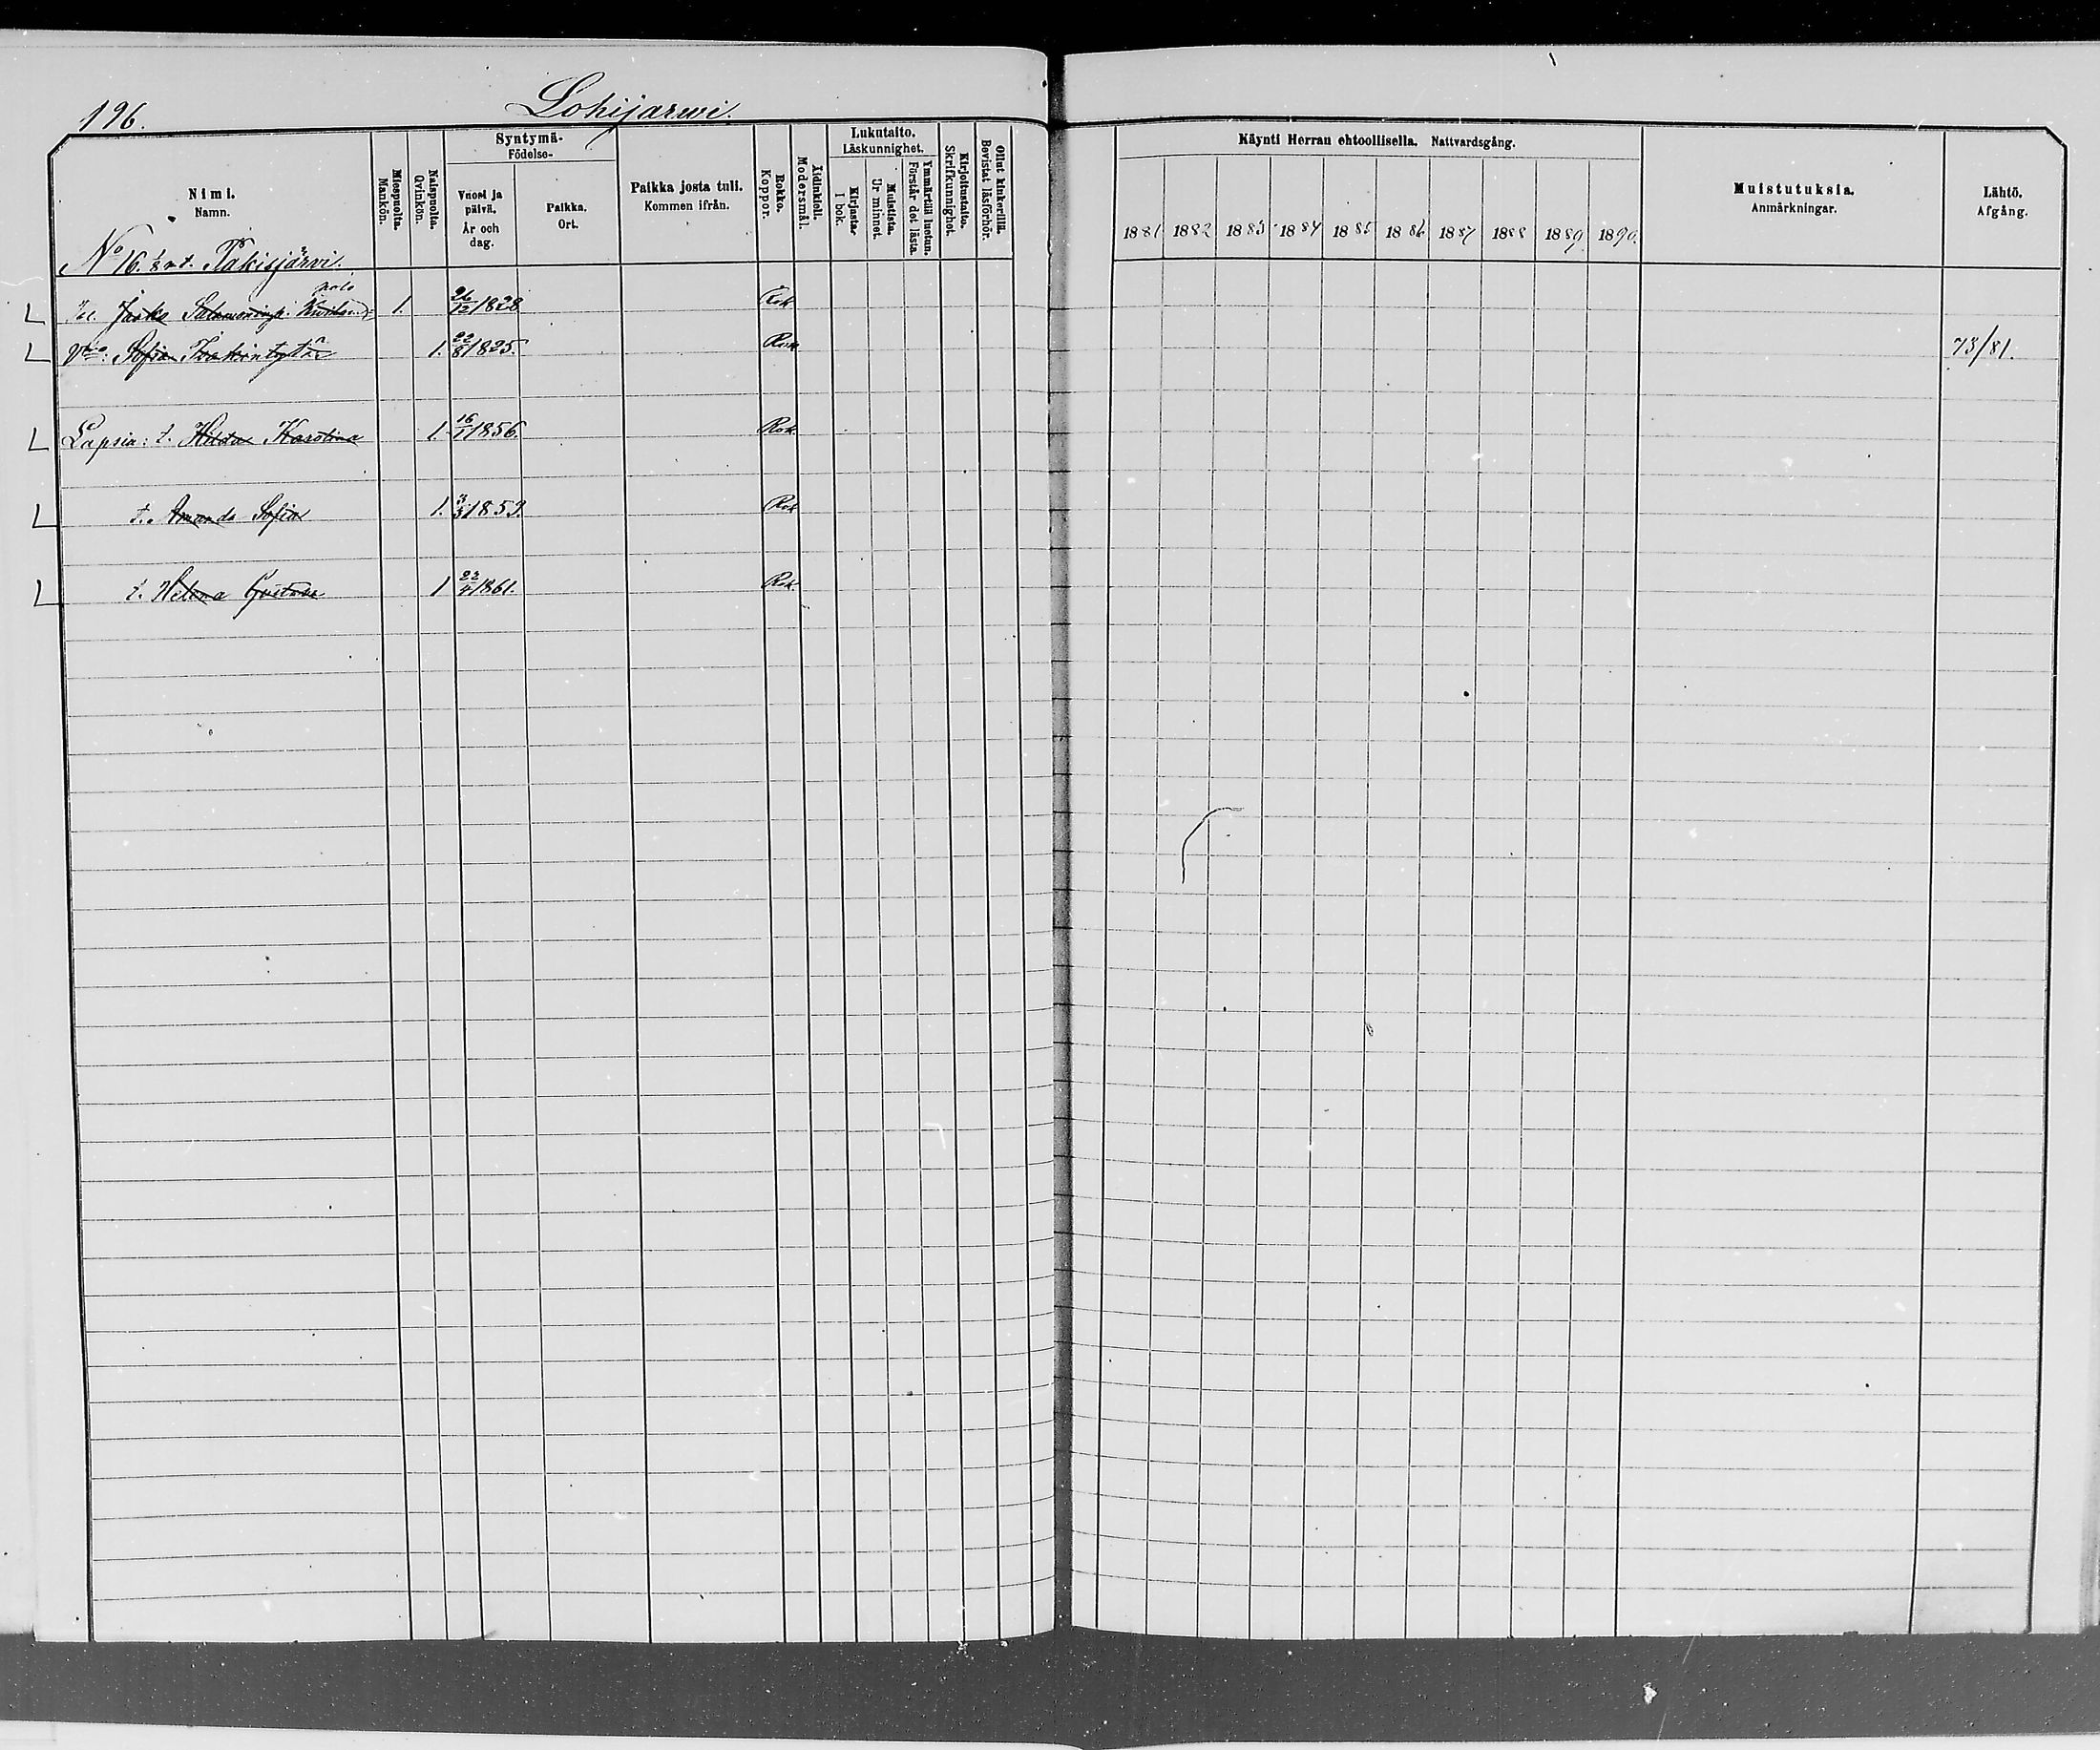 196.
Lohijarwi.
Nimi.
Namn.
Miespuolta.
Mankön.
Naispuolta.
Qvinkön.
Syntymä-
Födelse-
Vuosi ja päivä.
År och dag.
Paikka.
Ort.
Paikka josta tuli.
Kommen ifrån.
Rokko.
Koppor.
Äidinkieli.
Modersmål.
Lukutaito.
Läskunnighet.
Kirjasta.
I bok.
Muistista.
Ur minnet.
Ymmärtää luetun.
Förstår det lästa.
Kirjoitustaito.
Skrifkunnighet.
Ollut kinkerillä.
Bevistat läsförhör.
Käynti Herran ehtoollisella. Nattvardsgång.
1881 1882 1883 1884 1885 1886 1887 1888 1889 1890.
Muistutuksia.
Anmärkningar.
Lähtö.
Afgång.
No 16.
Jaska 1. 26/12 1828 Rok
Sofia 1. 22/8 1825. Rok 73/81.
Lapsia: t. Hilda Karolina 1. 16/1 1856. Rok.
t. Amanda Sofia 1. 1859. Rok
t. Helena Gustava 1 22/4 1861. Rok.